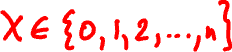 X ∈ {0,1,2,...,n}